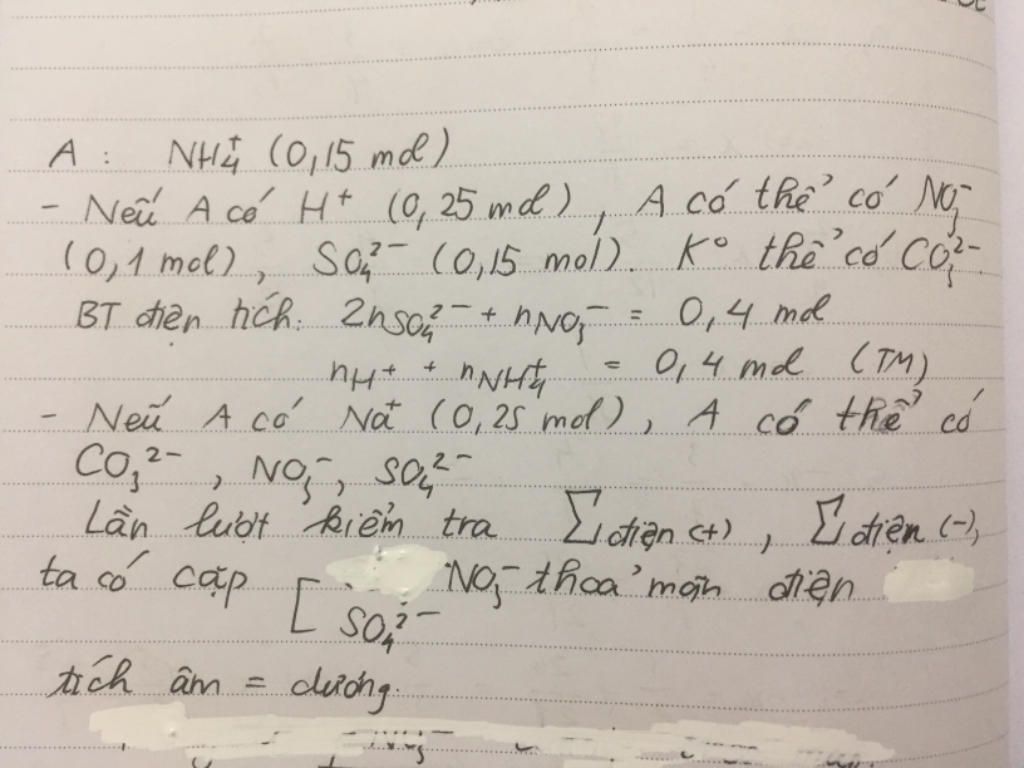 A : NH₄⁺ (0,15 mol)
- Nếu A có H⁺ (0,25 mol), A có thể có NO₃⁻
(0,1 mol), SO₄²⁻ (0,15 mol). K° thể có CO₃²⁻
BT điện tích: 2nSO₄²⁻ + nNO₃⁻ = 0,4 mol
nH⁺ + nNH₄⁺ = 0,4 mol (TM)
- Nếu A có Na⁺ (0,25 mol), A có thể có
CO₃²⁻, NO₃⁻, SO₄²⁻
Lần lượt kiểm tra ∑điện (+), ∑điện (-),
ta có cặp [ NO₃⁻ thoả mãn điện
SO₄²⁻
tích âm = dương.